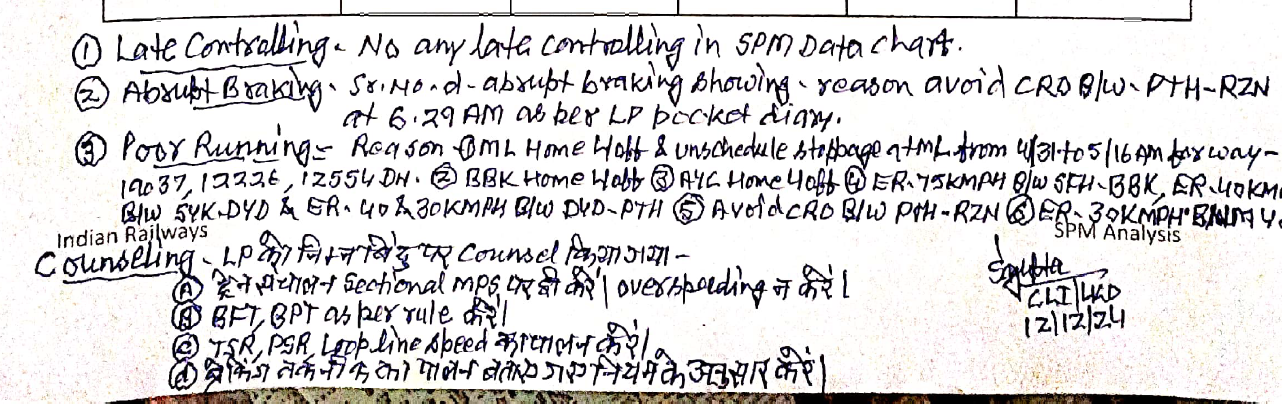 ① Late Controlling - No any late controlling in SPM Data chart.
② Abrupt Braking - Sr. No. d - abrupt braking showing - reason avoid CRO B/W - PTH-RZN
at 6.29 AM as per LP pocket diary.
③ Poor Running - Reason ① ML Home Hoff & unschedule stoppage at ML from 4/31 to 5/16 AM for way -
19037, 12226, 12554 DN. ② BBK Home Hoff ③ AYC Home Hoff ④ ER-75KMPH B/W SFH-BBK, ER-40KM
B/W SYK-DYD & ER-40 & 30KMPH B/W DYD-PTH ⑤ Avoid CRO B/W PTH-RZN ⑥ ER-30KMPH
Indian Railways
SPM Analysis
Counselling - LP को निम्न बिंदु पर Counsel किया गया -
Ⓐ ट्रेन संचालन Sectional MPS पर ही करें। overspeeding न करें।
Ⓑ BFT, BPT as per rule करें।
Ⓒ TSR, PSR, Loop line speed का पालन करें।
ⓓ ब्रेकिंग तकनीक का पालन बताए गए नियम के अनुसार करें।
Sgupta
CLI/LKO
12/12/24